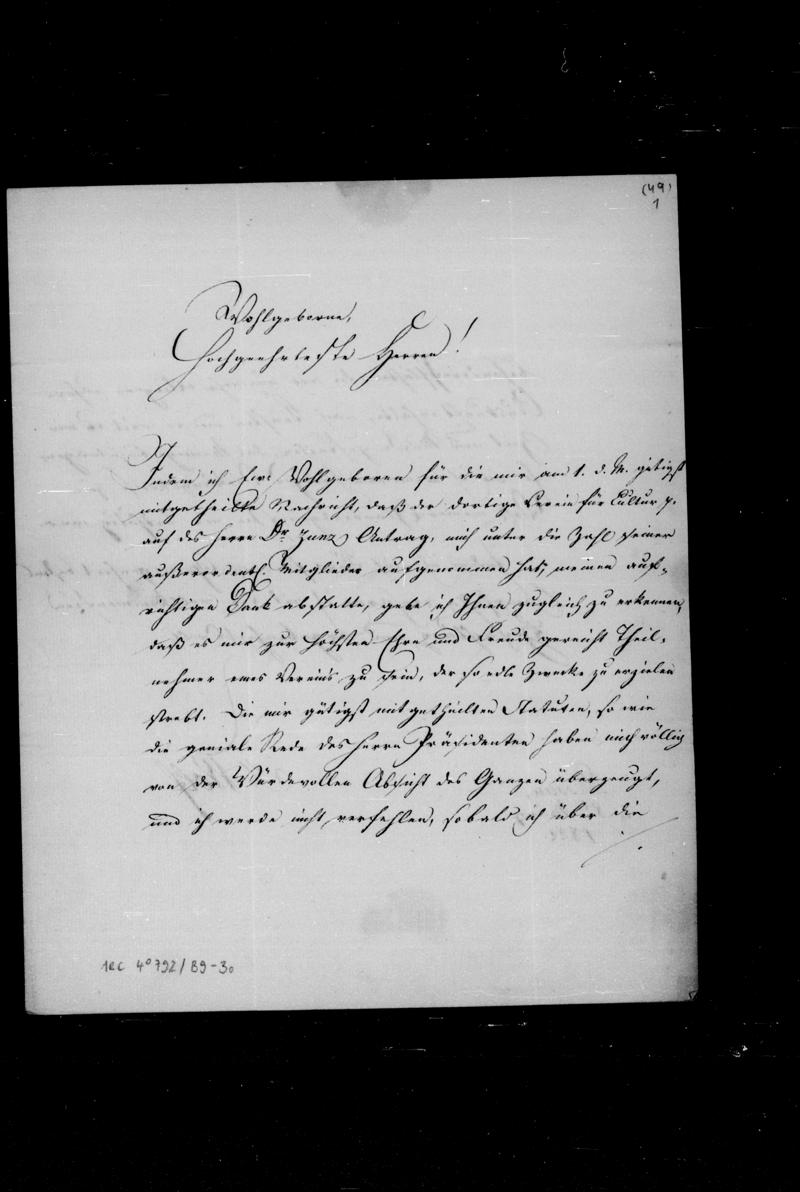 (49)
1
Wohlgeborne,
Hochgeehrteste Herren!
Indem ich Ew. Wohlgeboren für die mir am 1. d. M. gütigst
mitgetheilte Nachricht, daß der dortige Verein für Cultur p.
auf des Herrn Dr Zunz Antrag, mich unter die Zahl seiner
außerordentl. Mitglieder aufgenommen hat, meinen auf-
richtigen Dank abstatte, gebe ich Ihnen zugleich zu erkennen,
daß es mir zur höchsten Ehre und Freude gereicht Theil-
nehmer eines Vereins zu sein, der so edle Zwecke zu erzielen
strebt. Die mir gütigst mitgetheilten Statuten, so wie
die geniale Rede des Herrn Präsidenten haben mich völlig
von der Würdevollen Absicht des Ganzen überzeugt,
und ich werde nicht verfehlen, sobald ich über die
ARC 4° 792/B9-30